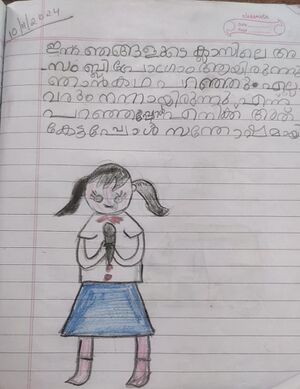 10/11/2024
ഇന്ന് ഞങ്ങളുടെ ക്ലാസിലെ അ
സംബ്ലി പ്രോഗ്രാം ആയിരുന്നു
ഞാൻ കഥ പറഞ്ഞു. എല്ലാ
വരും നന്നായിരുന്നു എന്ന്
പറഞ്ഞപ്പോൾ എനിക്ക് അത്
കേട്ടപ്പോൾ സന്തോഷമായി